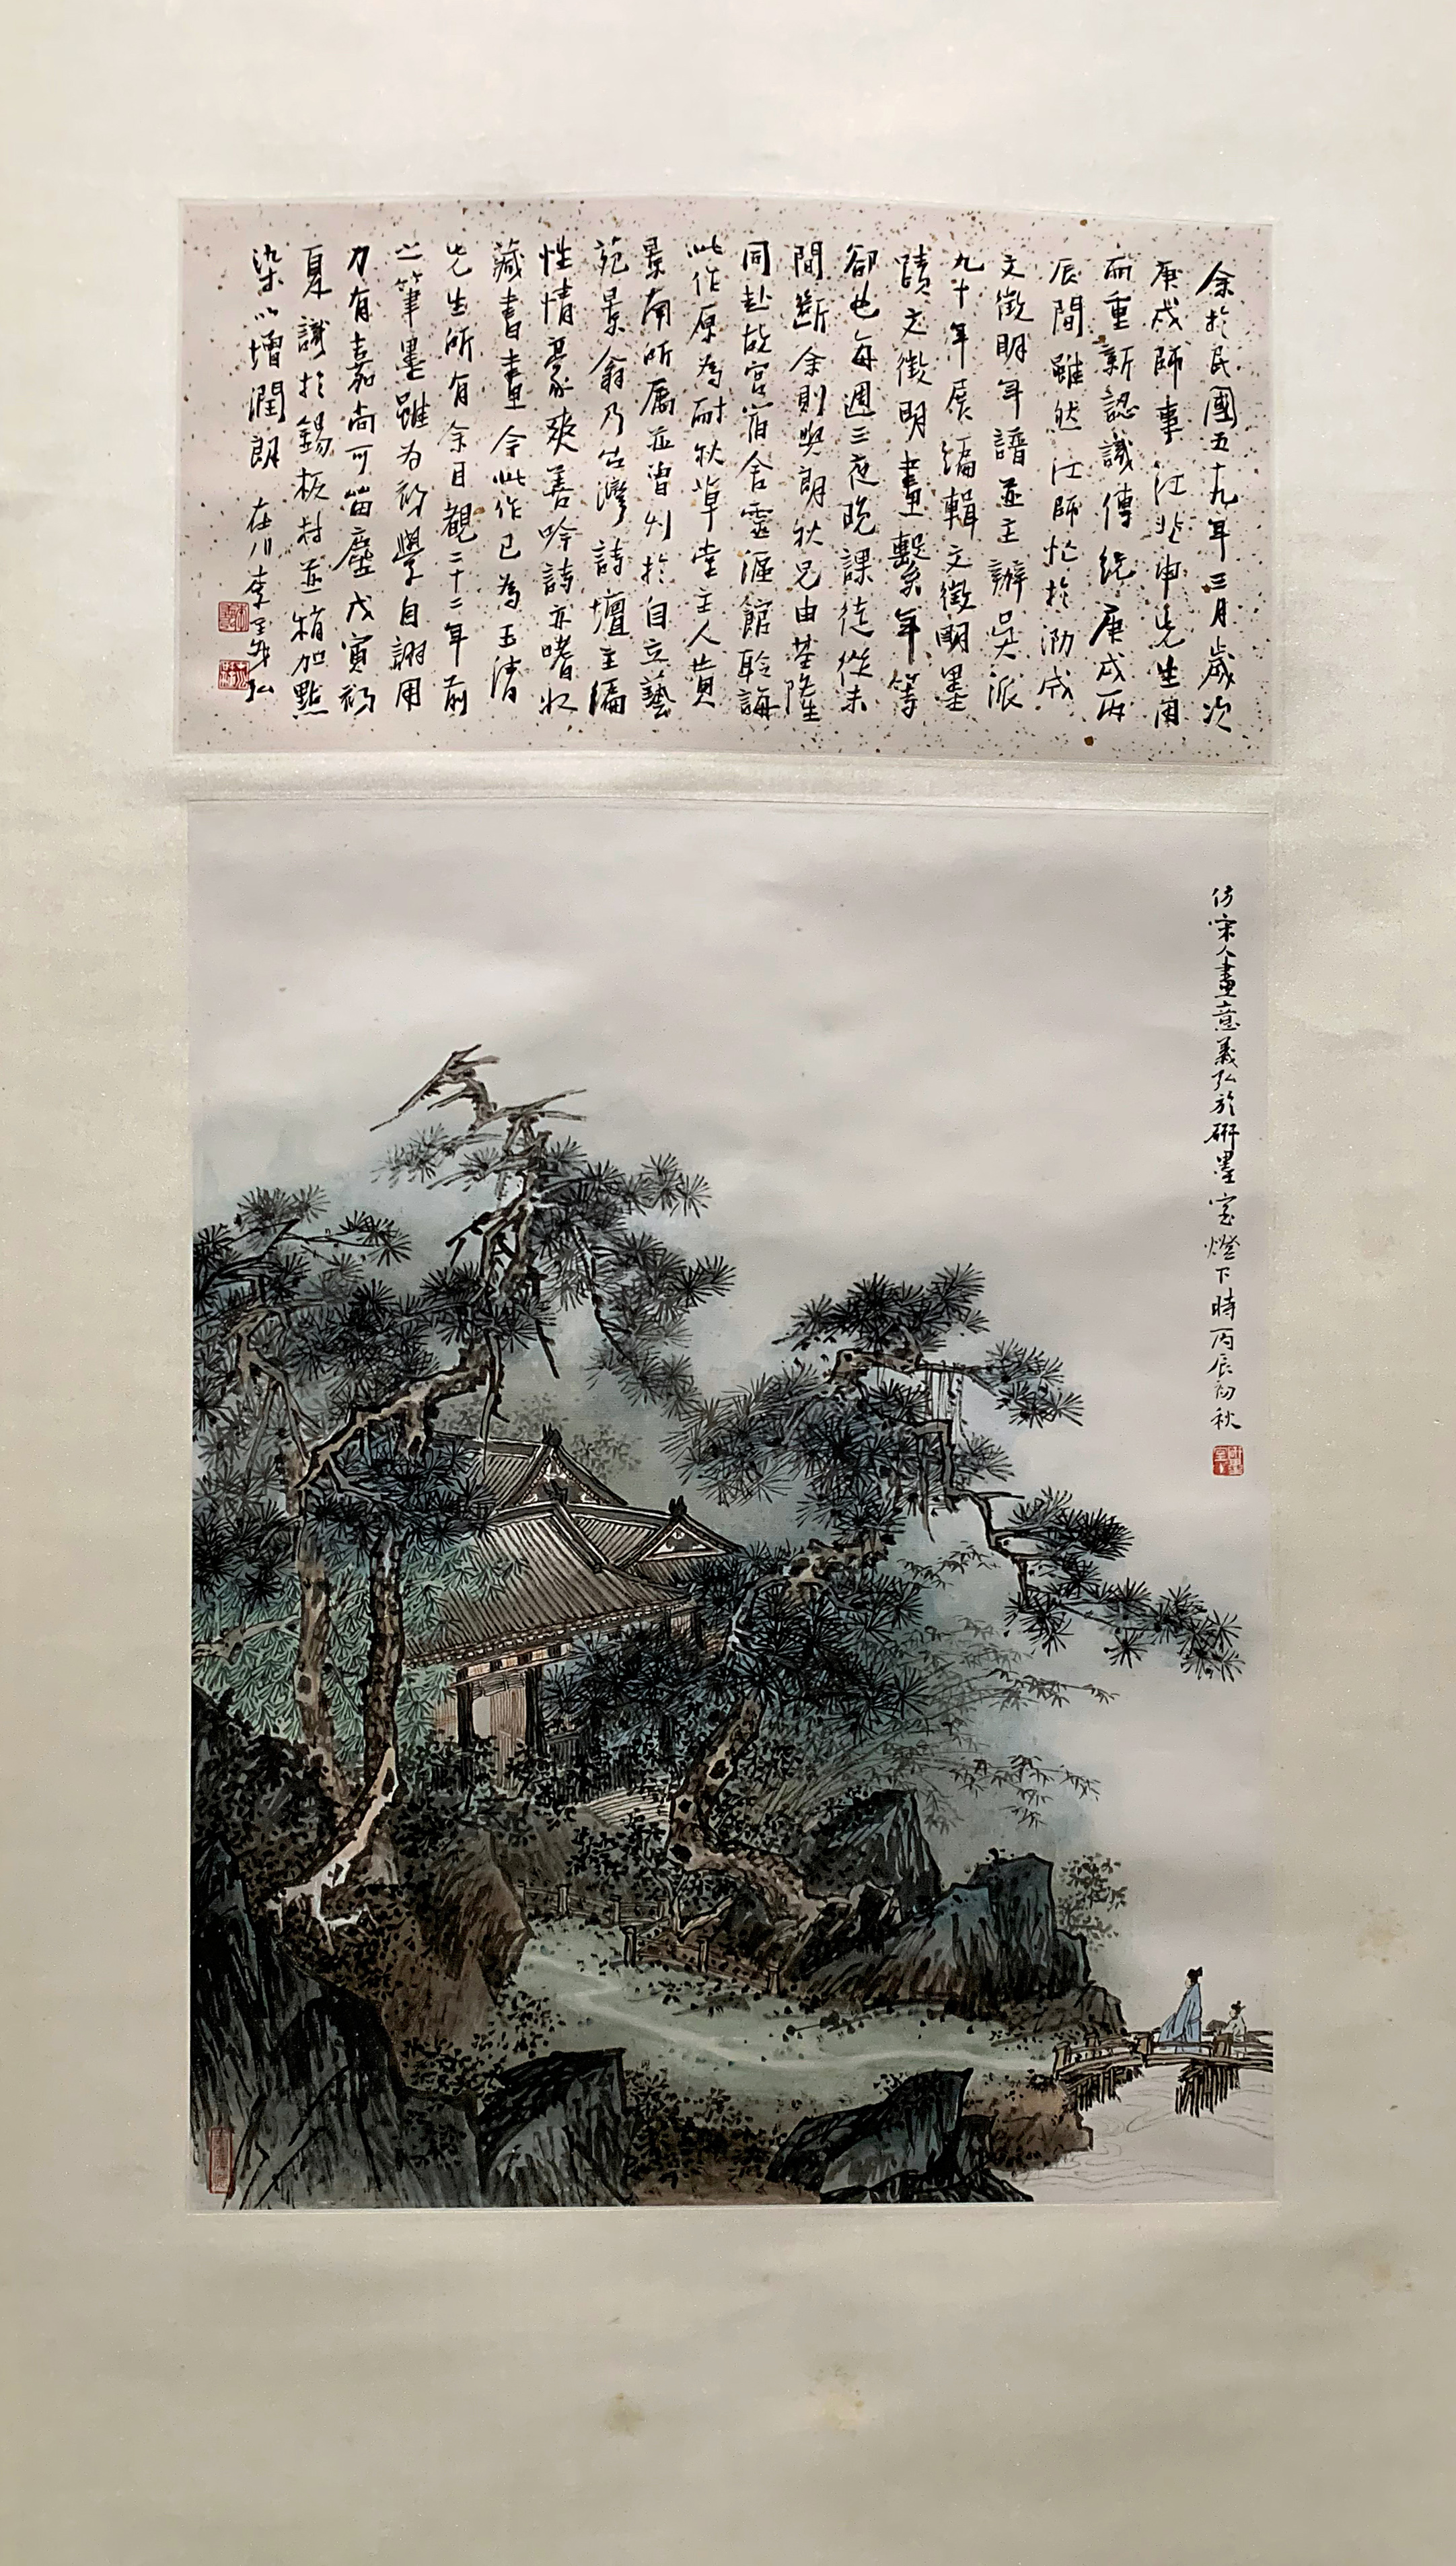 余於民國五十九年三月歲次
庚戌師事 江兆申先生由
而重新認識傳統庚戌丙
辰間雖然 江師忙於 成
文徵明年譜並主辦吳派
九十年展編輯文徵明墨
蹟文徵明畫繫年等
卻也每週三夜晚課徒從未
間斷余則與朗秋兄由基隆
同赴故宮宿舍靈漚館聆誨
此作原為耐秋草堂主人黄
景南所屬並曾刊於自立藝
苑景翁乃台灣詩壇主編
性情豪爽善吟詩亦嗜收
藏書畫今此作已為玉清
先生所有余目觀二十二年前
之筆墨雖為初學自謝用
力有嘉尚可 戊寅初
夏識於錫板村並稍加點
染以增潤朗 在川李義弘
仿宋人畫意義弘於研墨室燈下時丙辰初秋